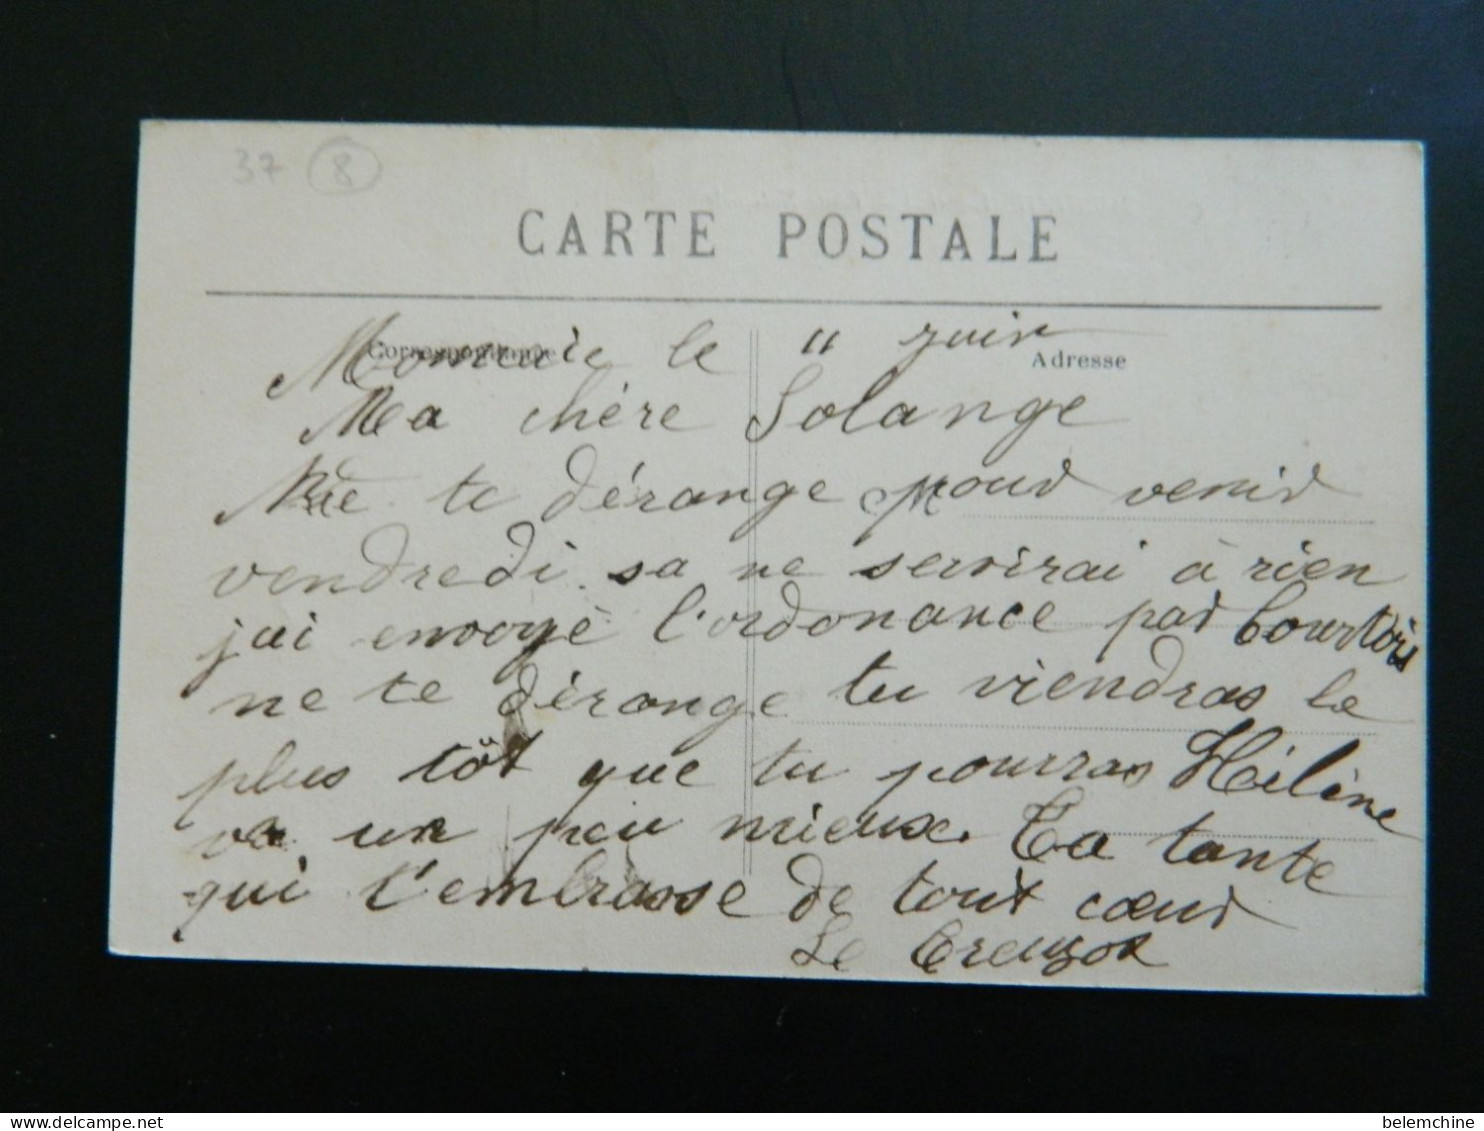 37 8
CARTE POSTALE
Correspondance
Adresse
le 11 juin
Ma chère Solange
Ne te dérange pour venir
vendredi sa ne servirai à rien
j'ai envoyé l'ordonance par Courtois
ne te dérange tu viendras le
plus tôt que tu pourras Hélène
va un peu mieux. Ta tante
qui t'embrasse de tout cœur
Le Creuzot
belemchine